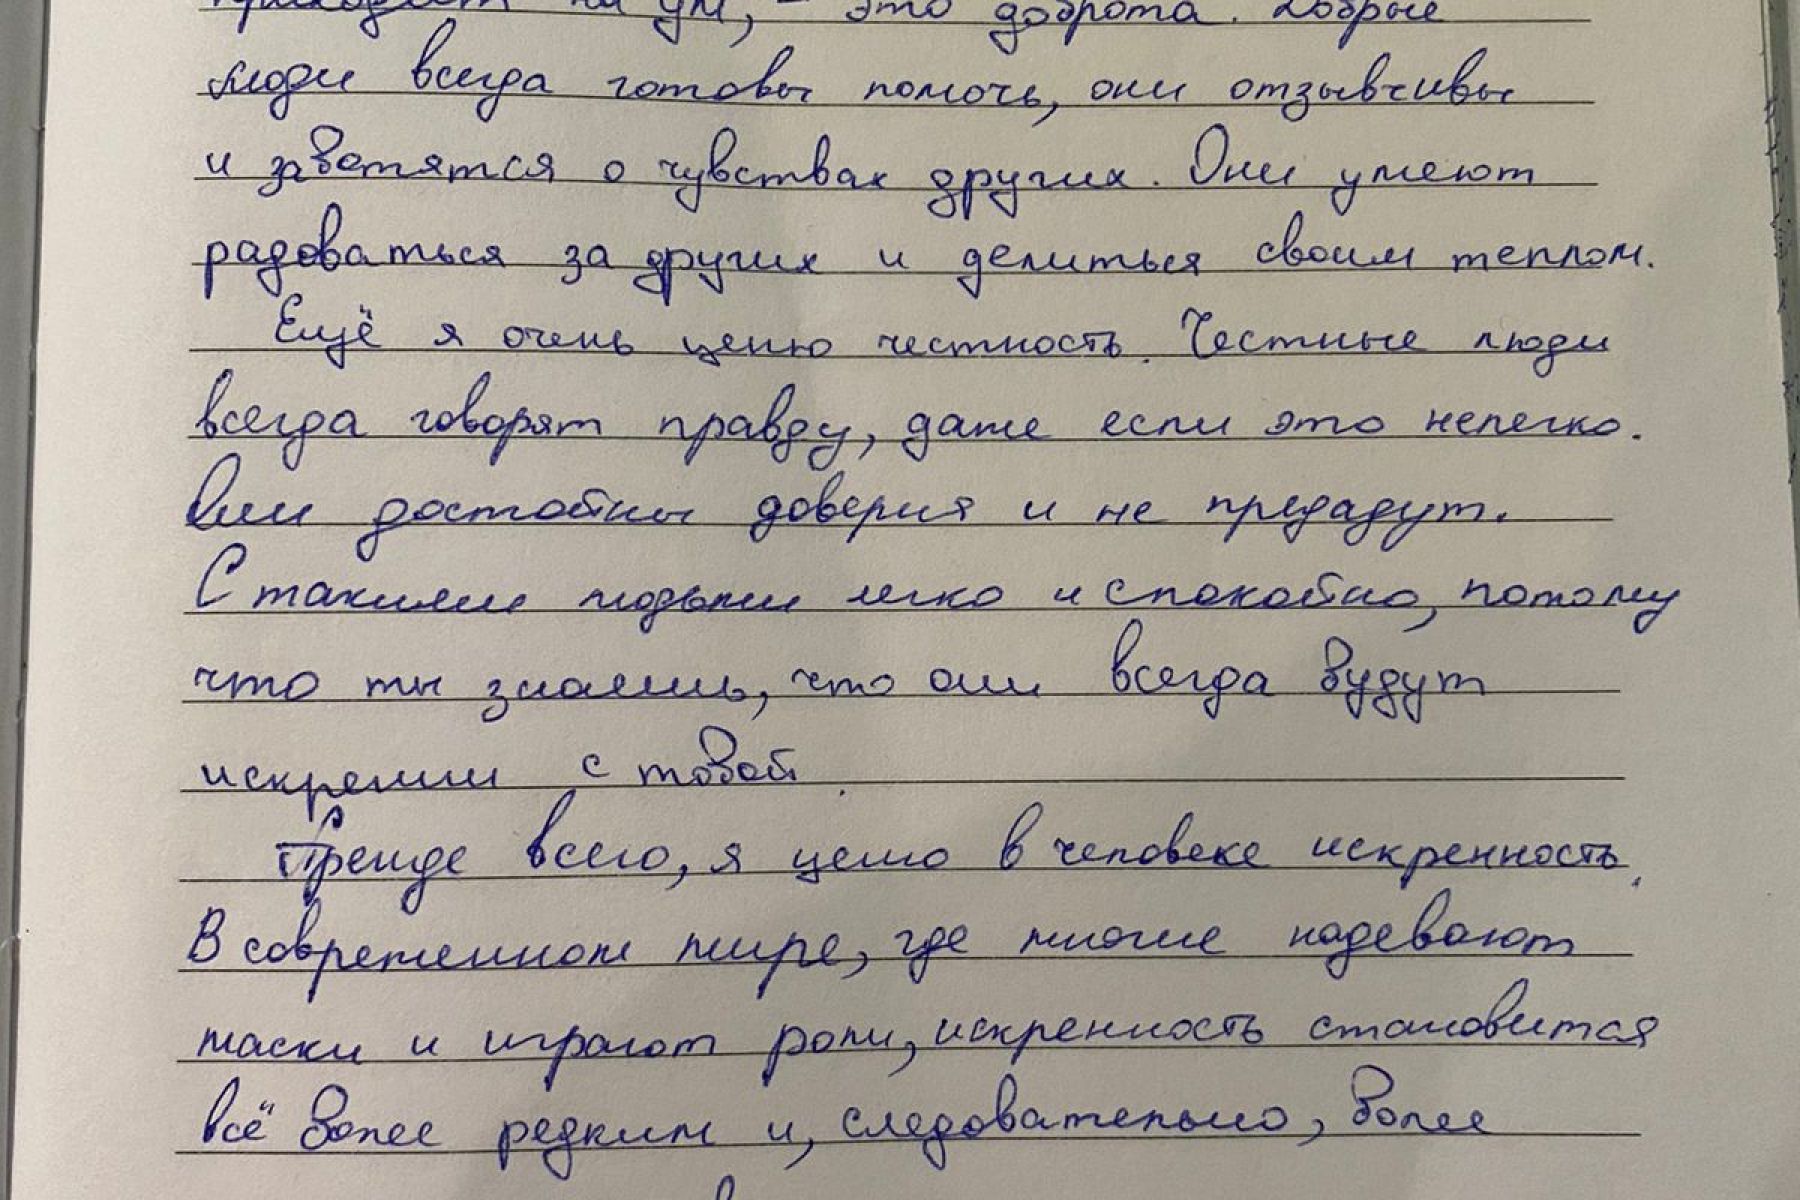 приходит на ум, – это доброта. Добрые
люди всегда готовы помочь, они отзывчивы
и заботятся о чувствах других. Они умеют
радоваться за других и делиться своим теплом.
Ещё я очень ценю честность. Честные люди
всегда говорят правду, даже если это нелегко.
Они достойны доверия и не предадут.
С такими людьми легко и спокойно, потому
что ты знаешь, что они всегда будут
искренни с тобой.
Прежде всего, я ценю в человеке искренность.
В современном мире, где многие надевают
маски и играют роли, искренность становится
всё более редким и, следовательно, более